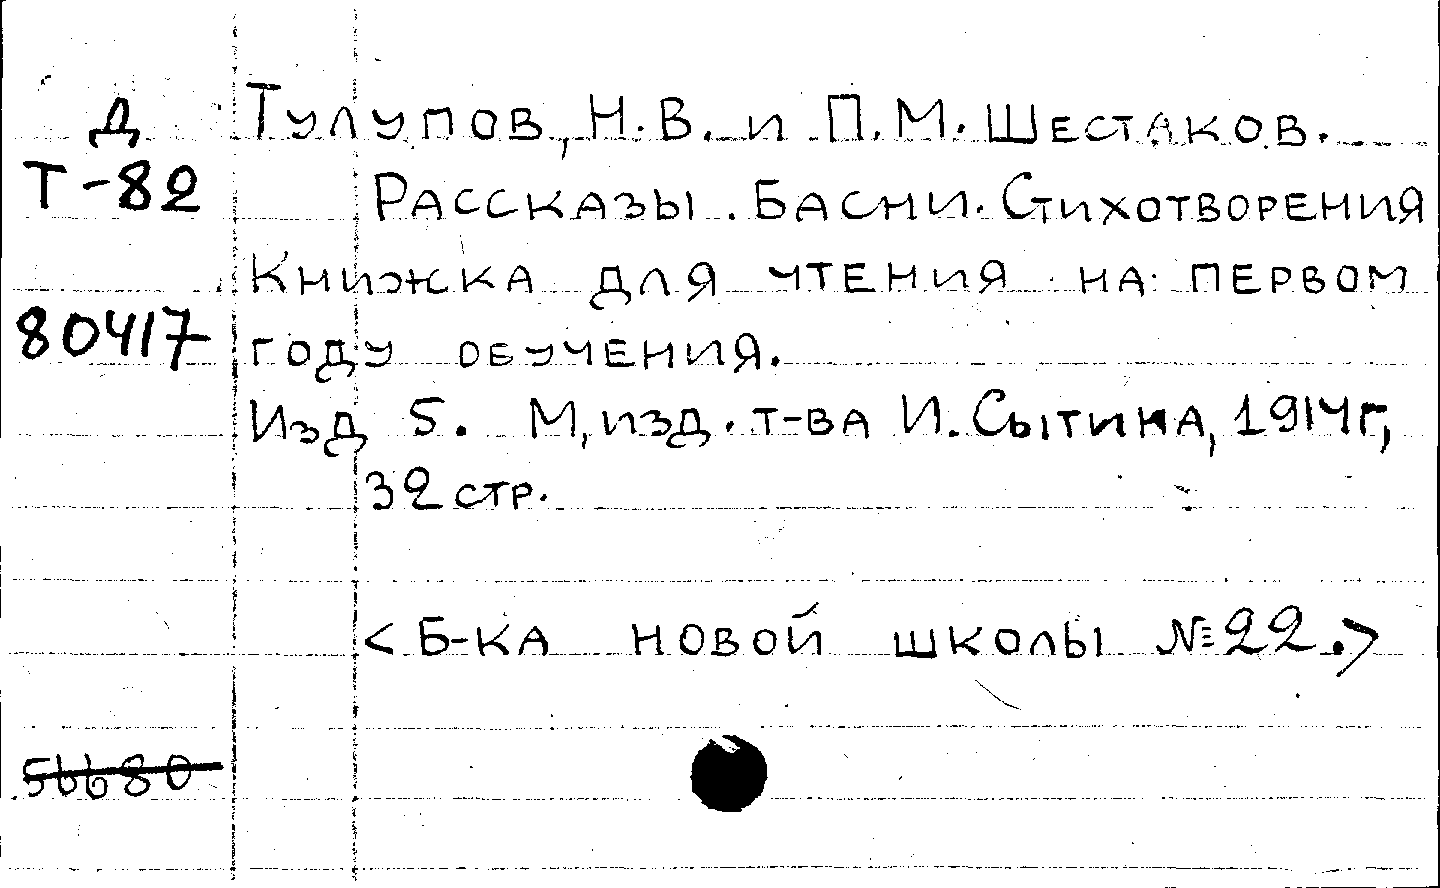 Д Тулупов, Н.В. и П.М. Шестаков.
Т-82 Рассказы. Басни. Стихотворения
Книжка для чтения на первом
80417 году обучения.
Изд 5. М, изд. т-ва И. Сытина, 1914г,
32 стр.
<Б-ка новой школы №22.>
56680